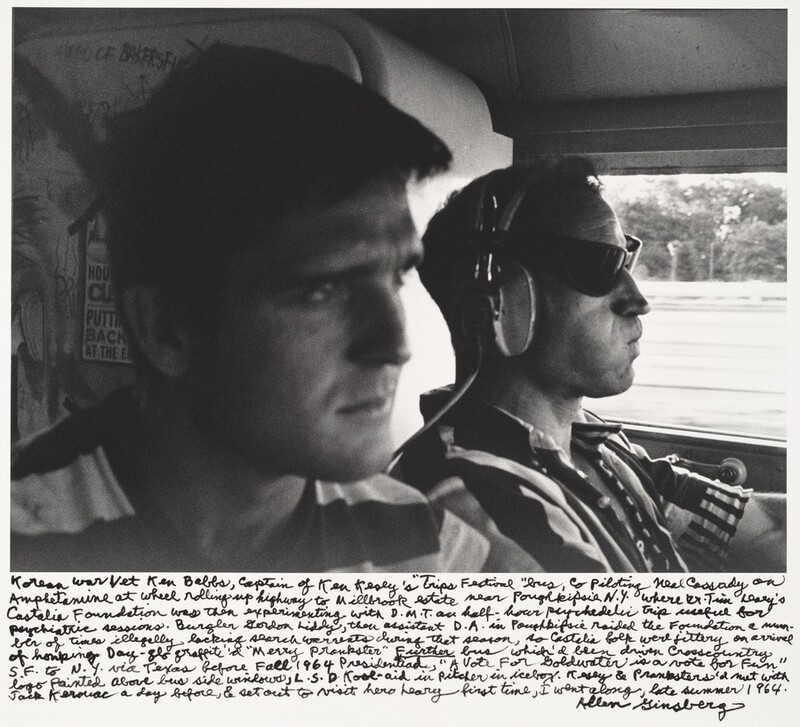 HERO OF BAKERSFI
HOU
CU
PUTTI
BACK
AT THE E
Korean war Vet Ken Babbs, Captain of Ken Kesey's "Trips Festival" bus, Co Piloting Neal Cassady on
Amphetamine at wheel rolling up highway to Millbrook estate near Poughkipsie N.Y. where Dr. Tim Leary's
Castalia Foundation was then experimenting with D.M.T. an half-hour psychedelic trip useful for
psychiatric sessions. Burgler Gordon Liddy, then assistant D.A. in Poughkipsie raided the Foundation a num-
ber of times illegally lacking search warrents during that season, so Castelia folk were jittery on arrival
of honking Day-glo graffiti'd "Merry Prankster" Further bus which'd been driven Crosscountry
S.F. to N.Y. via Texas before Fall 1964 Presidential, "A Vote For Goldwater is a vote for Fun"
logo Painted above bus side windows, L.S.D. Kool-aid in Pitcher in icebox. Kesey & Pranksters'd met with
Jack Kerouac a day before, & set out to visit hero Leary first time, I went along, late summer 1964.
Allen Ginsberg